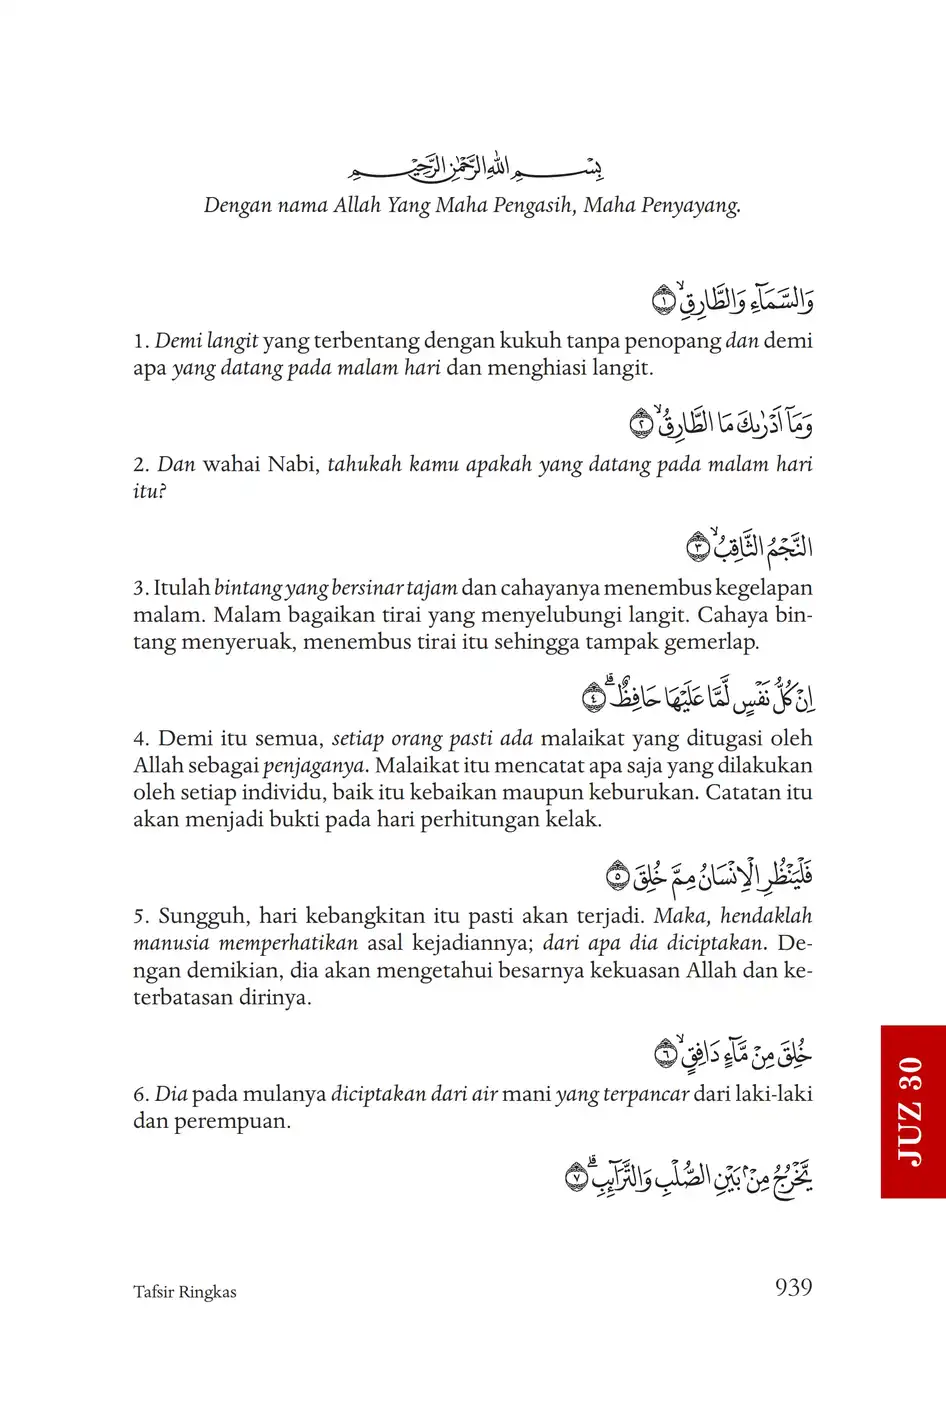 بِسْمِ اللّٰهِ الرَّحْمٰنِ الرَّحِيْمِ
Dengan nama Allah Yang Maha Pengasih, Maha Penyayang.
وَالسَّمَاۤءِ وَالطَّارِقِۙ ١
1. Demi langit yang terbentang dengan kukuh tanpa penopang dan demi
apa yang datang pada malam hari dan menghiasi langit.
وَمَآ اَدْرٰىكَ مَا الطَّارِقُۙ ٢
2. Dan wahai Nabi, tahukah kamu apakah yang datang pada malam hari
itu?
النَّجْمُ الثَّاقِبُۙ ٣
3. Itulah bintang yang bersinar tajam dan cahayanya menembus kegelapan
malam. Malam bagaikan tirai yang menyelubungi langit. Cahaya bin-
tang menyeruak, menembus tirai itu sehingga tampak gemerlap.
اِنْ كُلُّ نَفْسٍ لَّمَّا عَلَيْهَا حَافِظٌۗ ٤
4. Demi itu semua, setiap orang pasti ada malaikat yang ditugasi oleh
Allah sebagai penjaganya. Malaikat itu mencatat apa saja yang dilakukan
oleh setiap individu, baik itu kebaikan maupun keburukan. Catatan itu
akan menjadi bukti pada hari perhitungan kelak.
فَلْيَنْظُرِ الْاِنْسَانُ مِمَّ خُلِقَ ٥
5. Sungguh, hari kebangkitan itu pasti akan terjadi. Maka, hendaklah
manusia memperhatikan asal kejadiannya; dari apa dia diciptakan. De-
ngan demikian, dia akan mengetahui besarnya kekuasan Allah dan ke-
terbatasan dirinya.
خُلِقَ مِنْ مَّاۤءٍ دَافِقٍۙ ٦
6. Dia pada mulanya diciptakan dari air mani yang terpancar dari laki-laki
dan perempuan.
يَّخْرُجُ مِنْۢ بَيْنِ الصُّلْبِ وَالتَّرَاۤىِٕبِۗ ٧
JUZ 30
Tafsir Ringkas
939